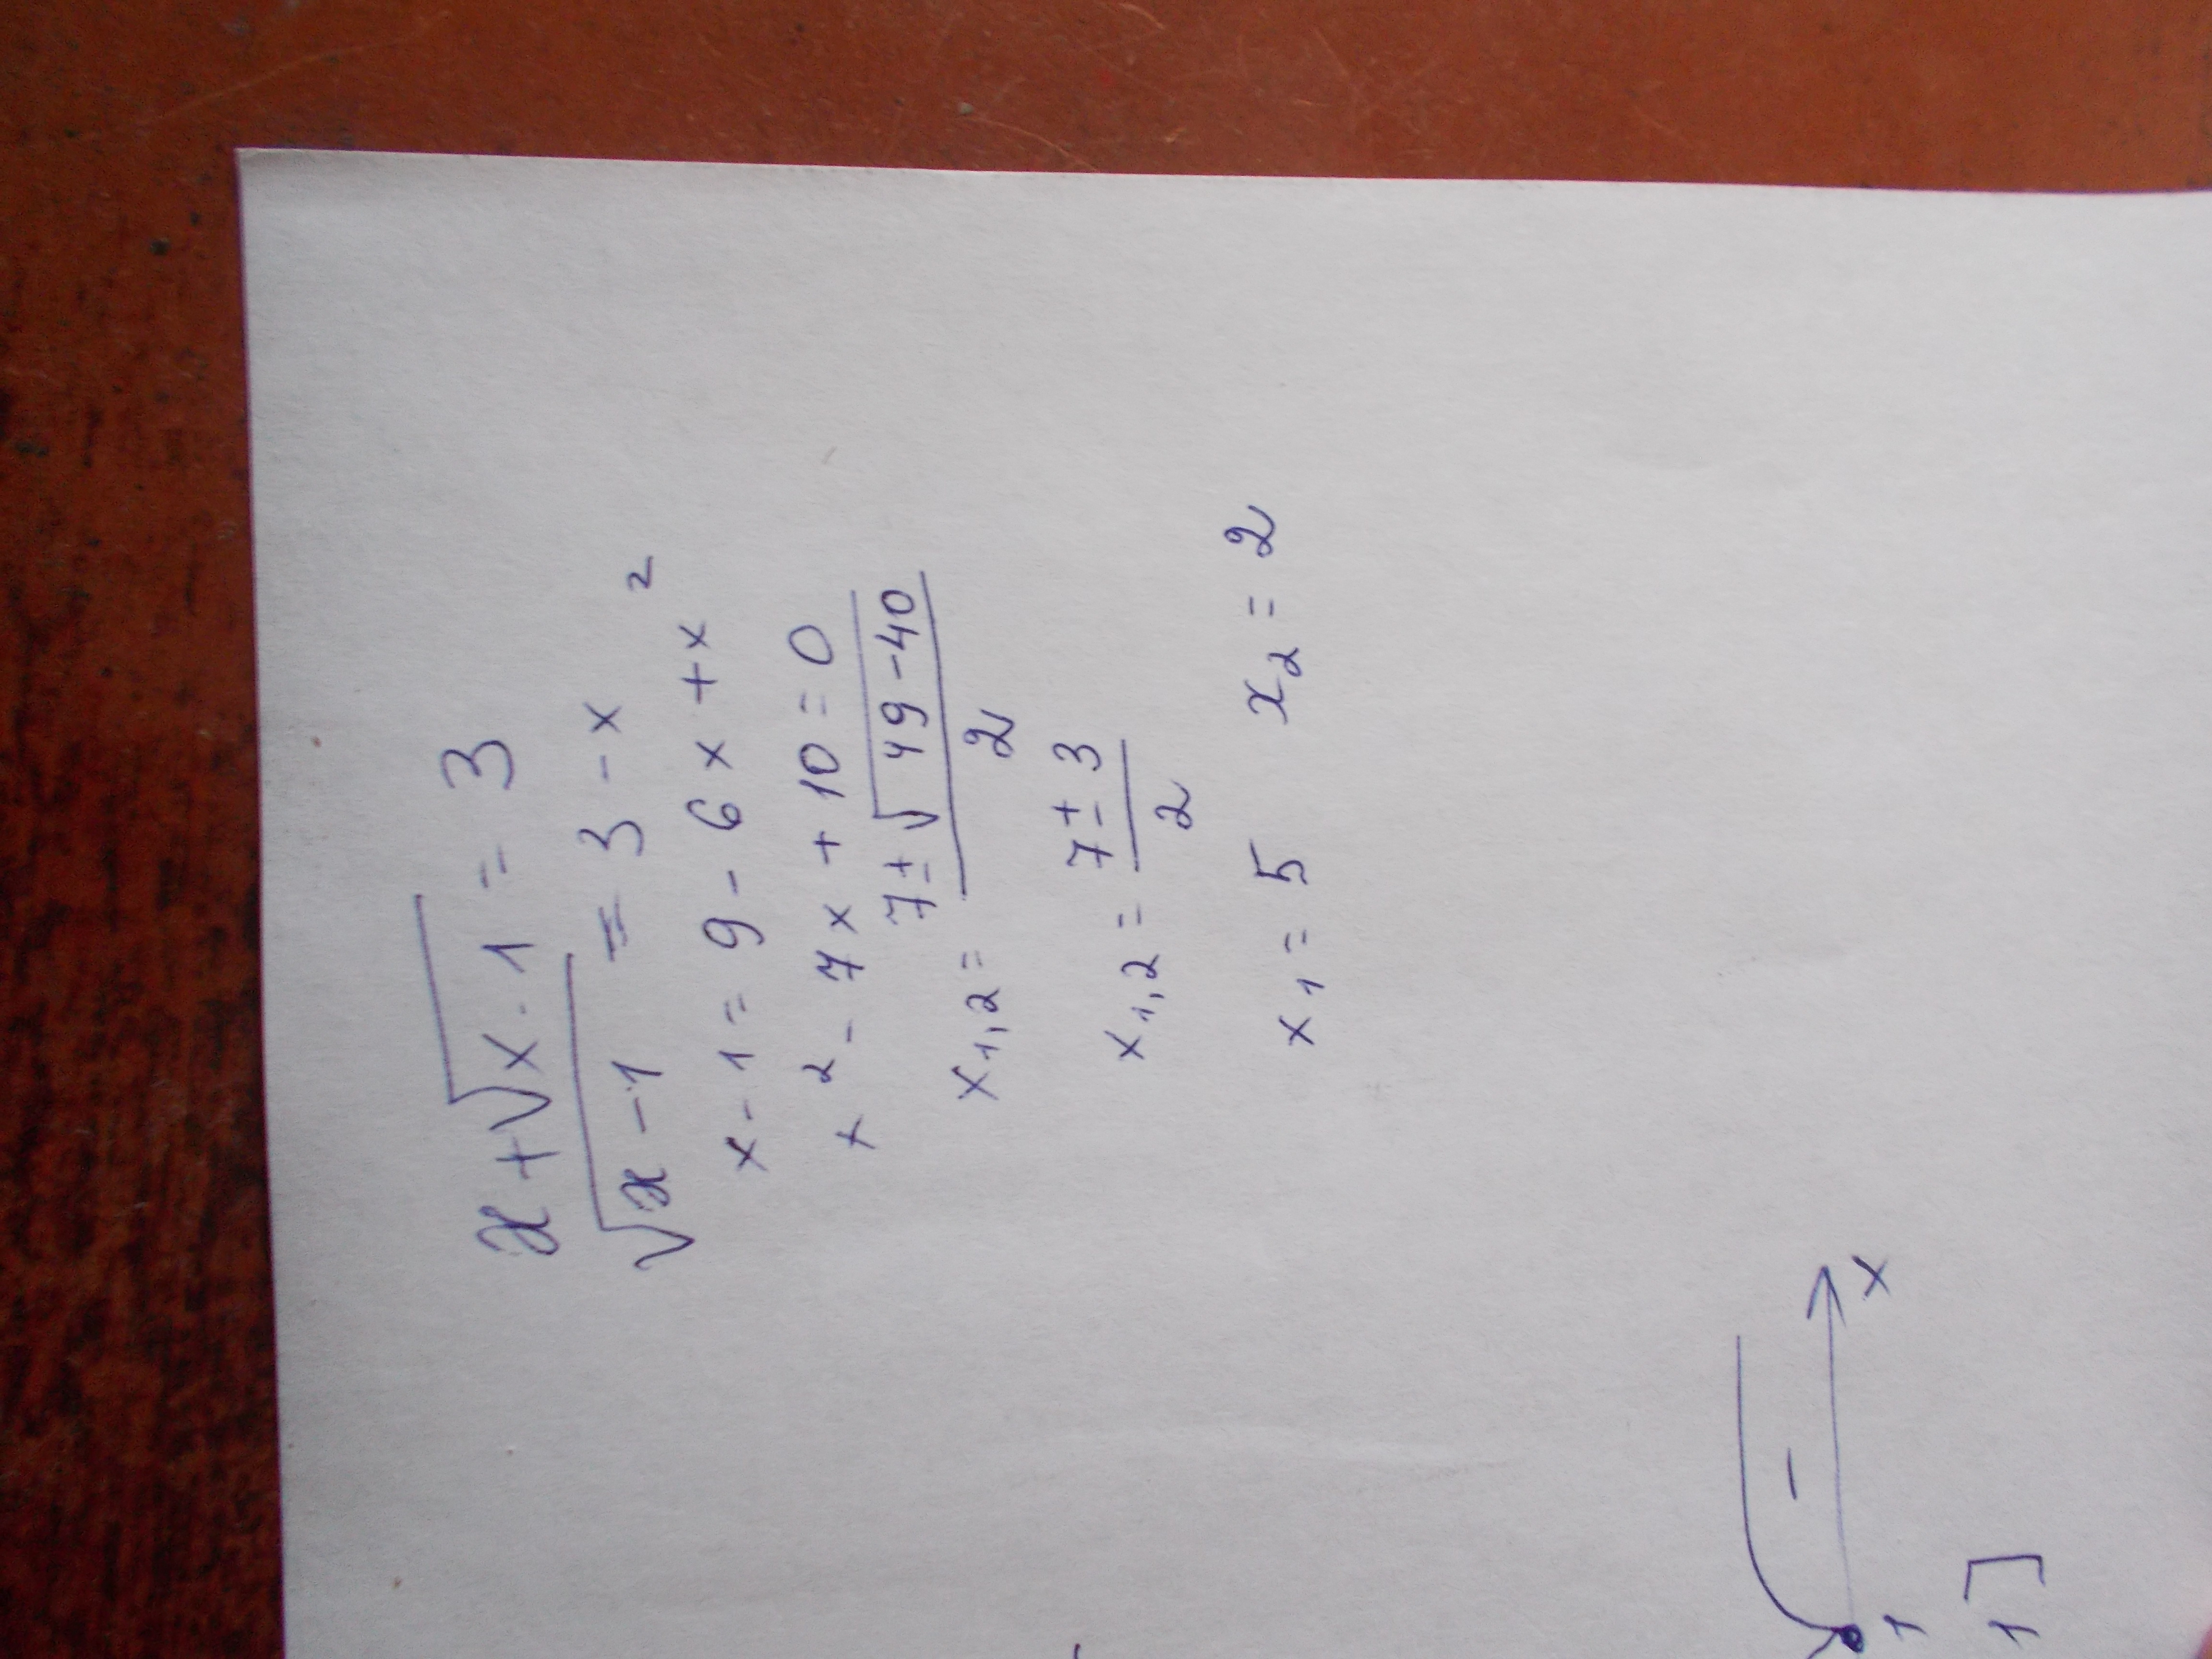 x + √x - 1 = 3
√x - 1 = 3 - x
x - 1 = 9 - 6x + x²
x² - 7x + 10 = 0
x₁,₂ = 7 ± √49 - 40 / 2
x₁,₂ = 7 ± 3 / 2
x₁ = 5 x₂ = 2
-
x
1
1]